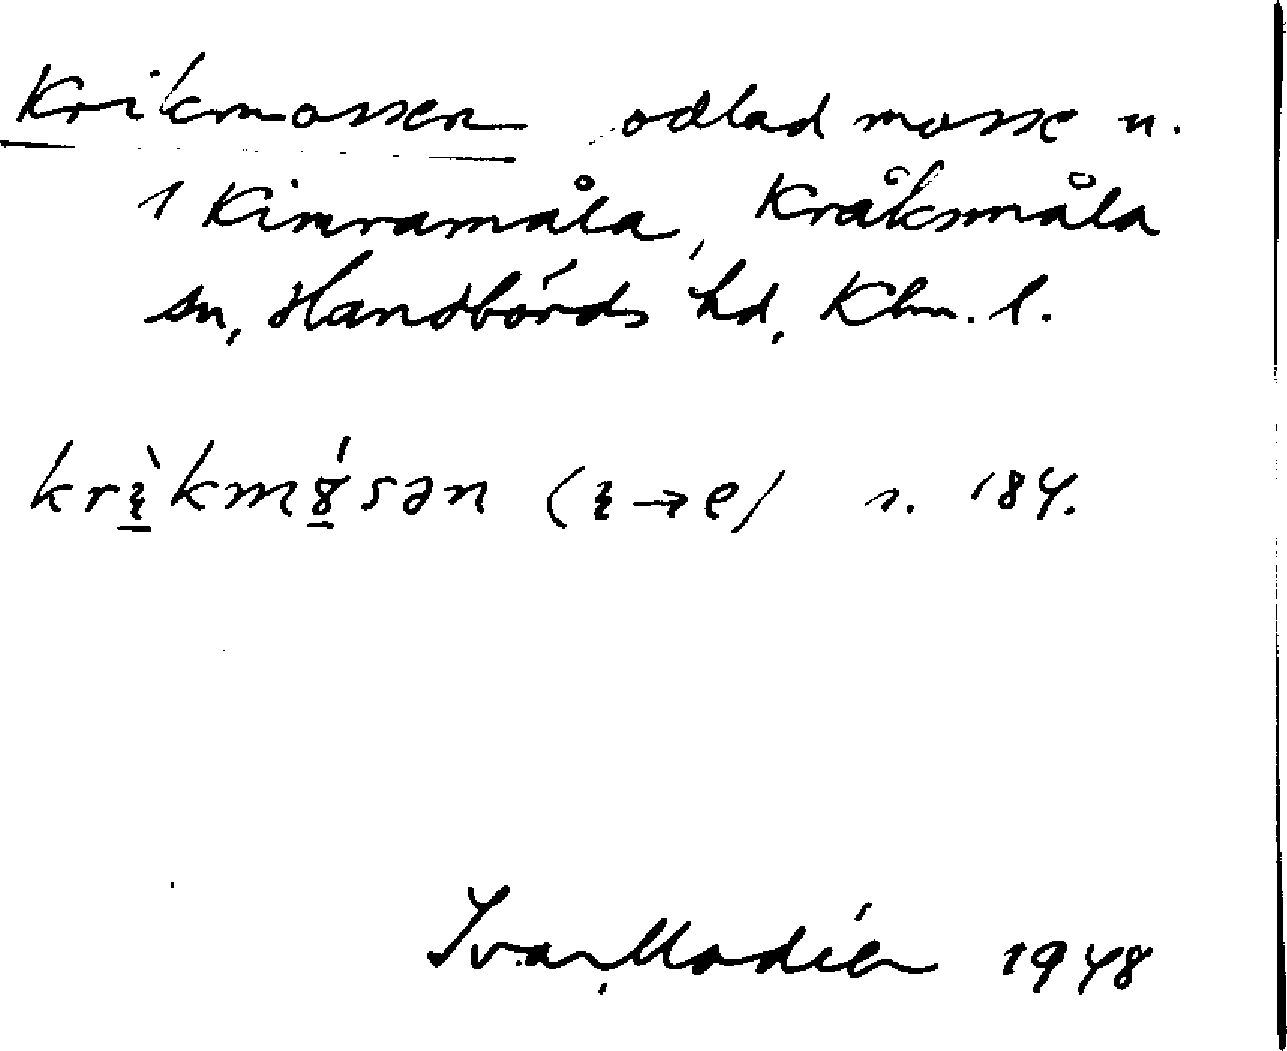 Krikmossen odlad mosse u.
1 Kimramåla, Kråksmåla
sn, Handbörds hd, Klm. l.
krìkmósən ( → e) s. 184.
Ivar Modéer 1948